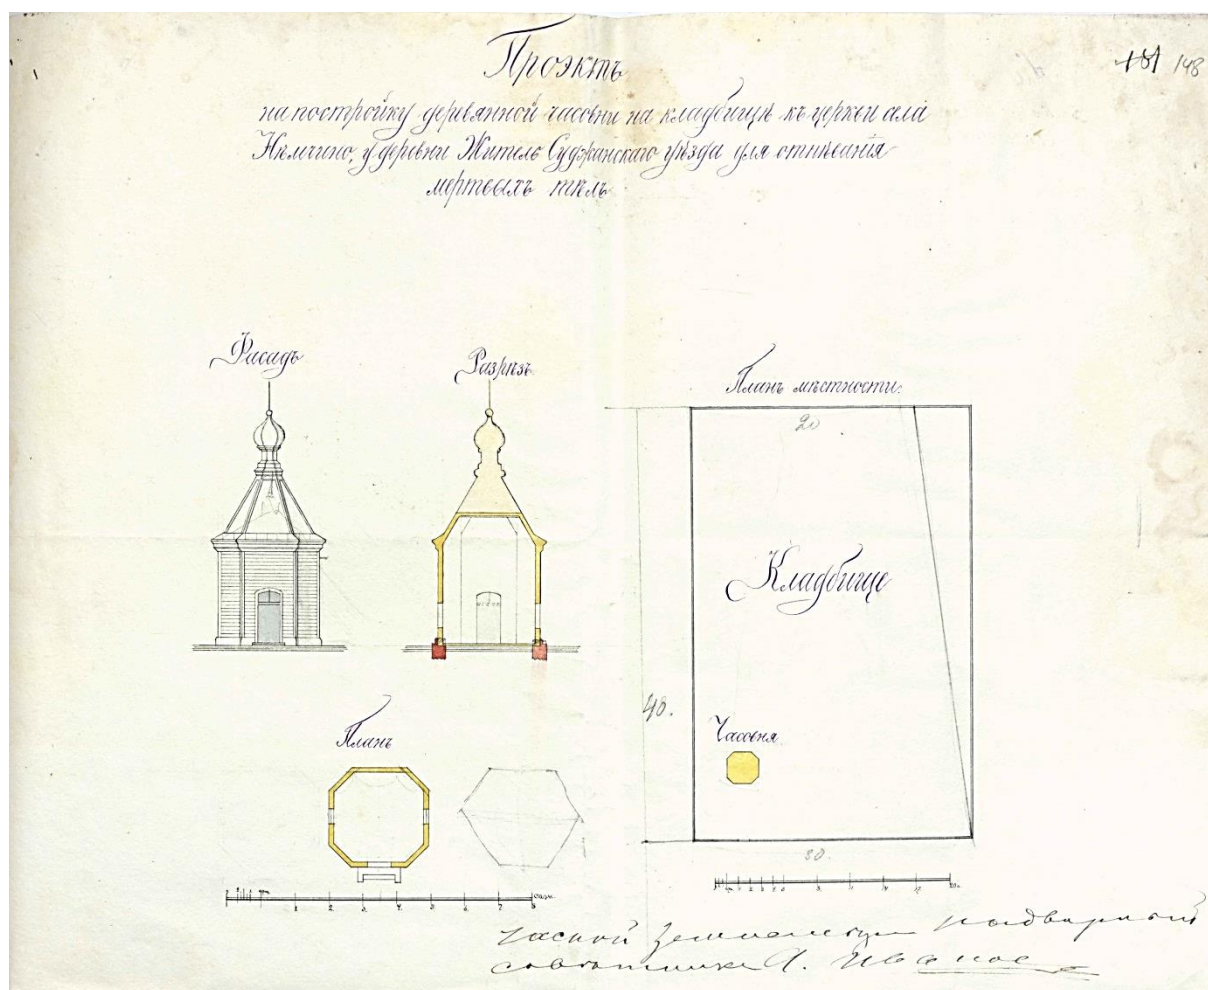 Проэктъ
148
на постройку деревянной часовни на кладбищѣ къ церкви села
Нѣмчино, у деревни Житель Суджанскаго уѣзда для отпѣванія
мертвыхъ тѣлъ
Фасадъ
Разрѣзъ
Планъ мѣстности.
20
Кладбище
40.
Часовня
Планъ
саж.
1 2 3 4 5 6 7 8
Частной Землемѣръ надворный
совѣтникъ А. Ивановъ